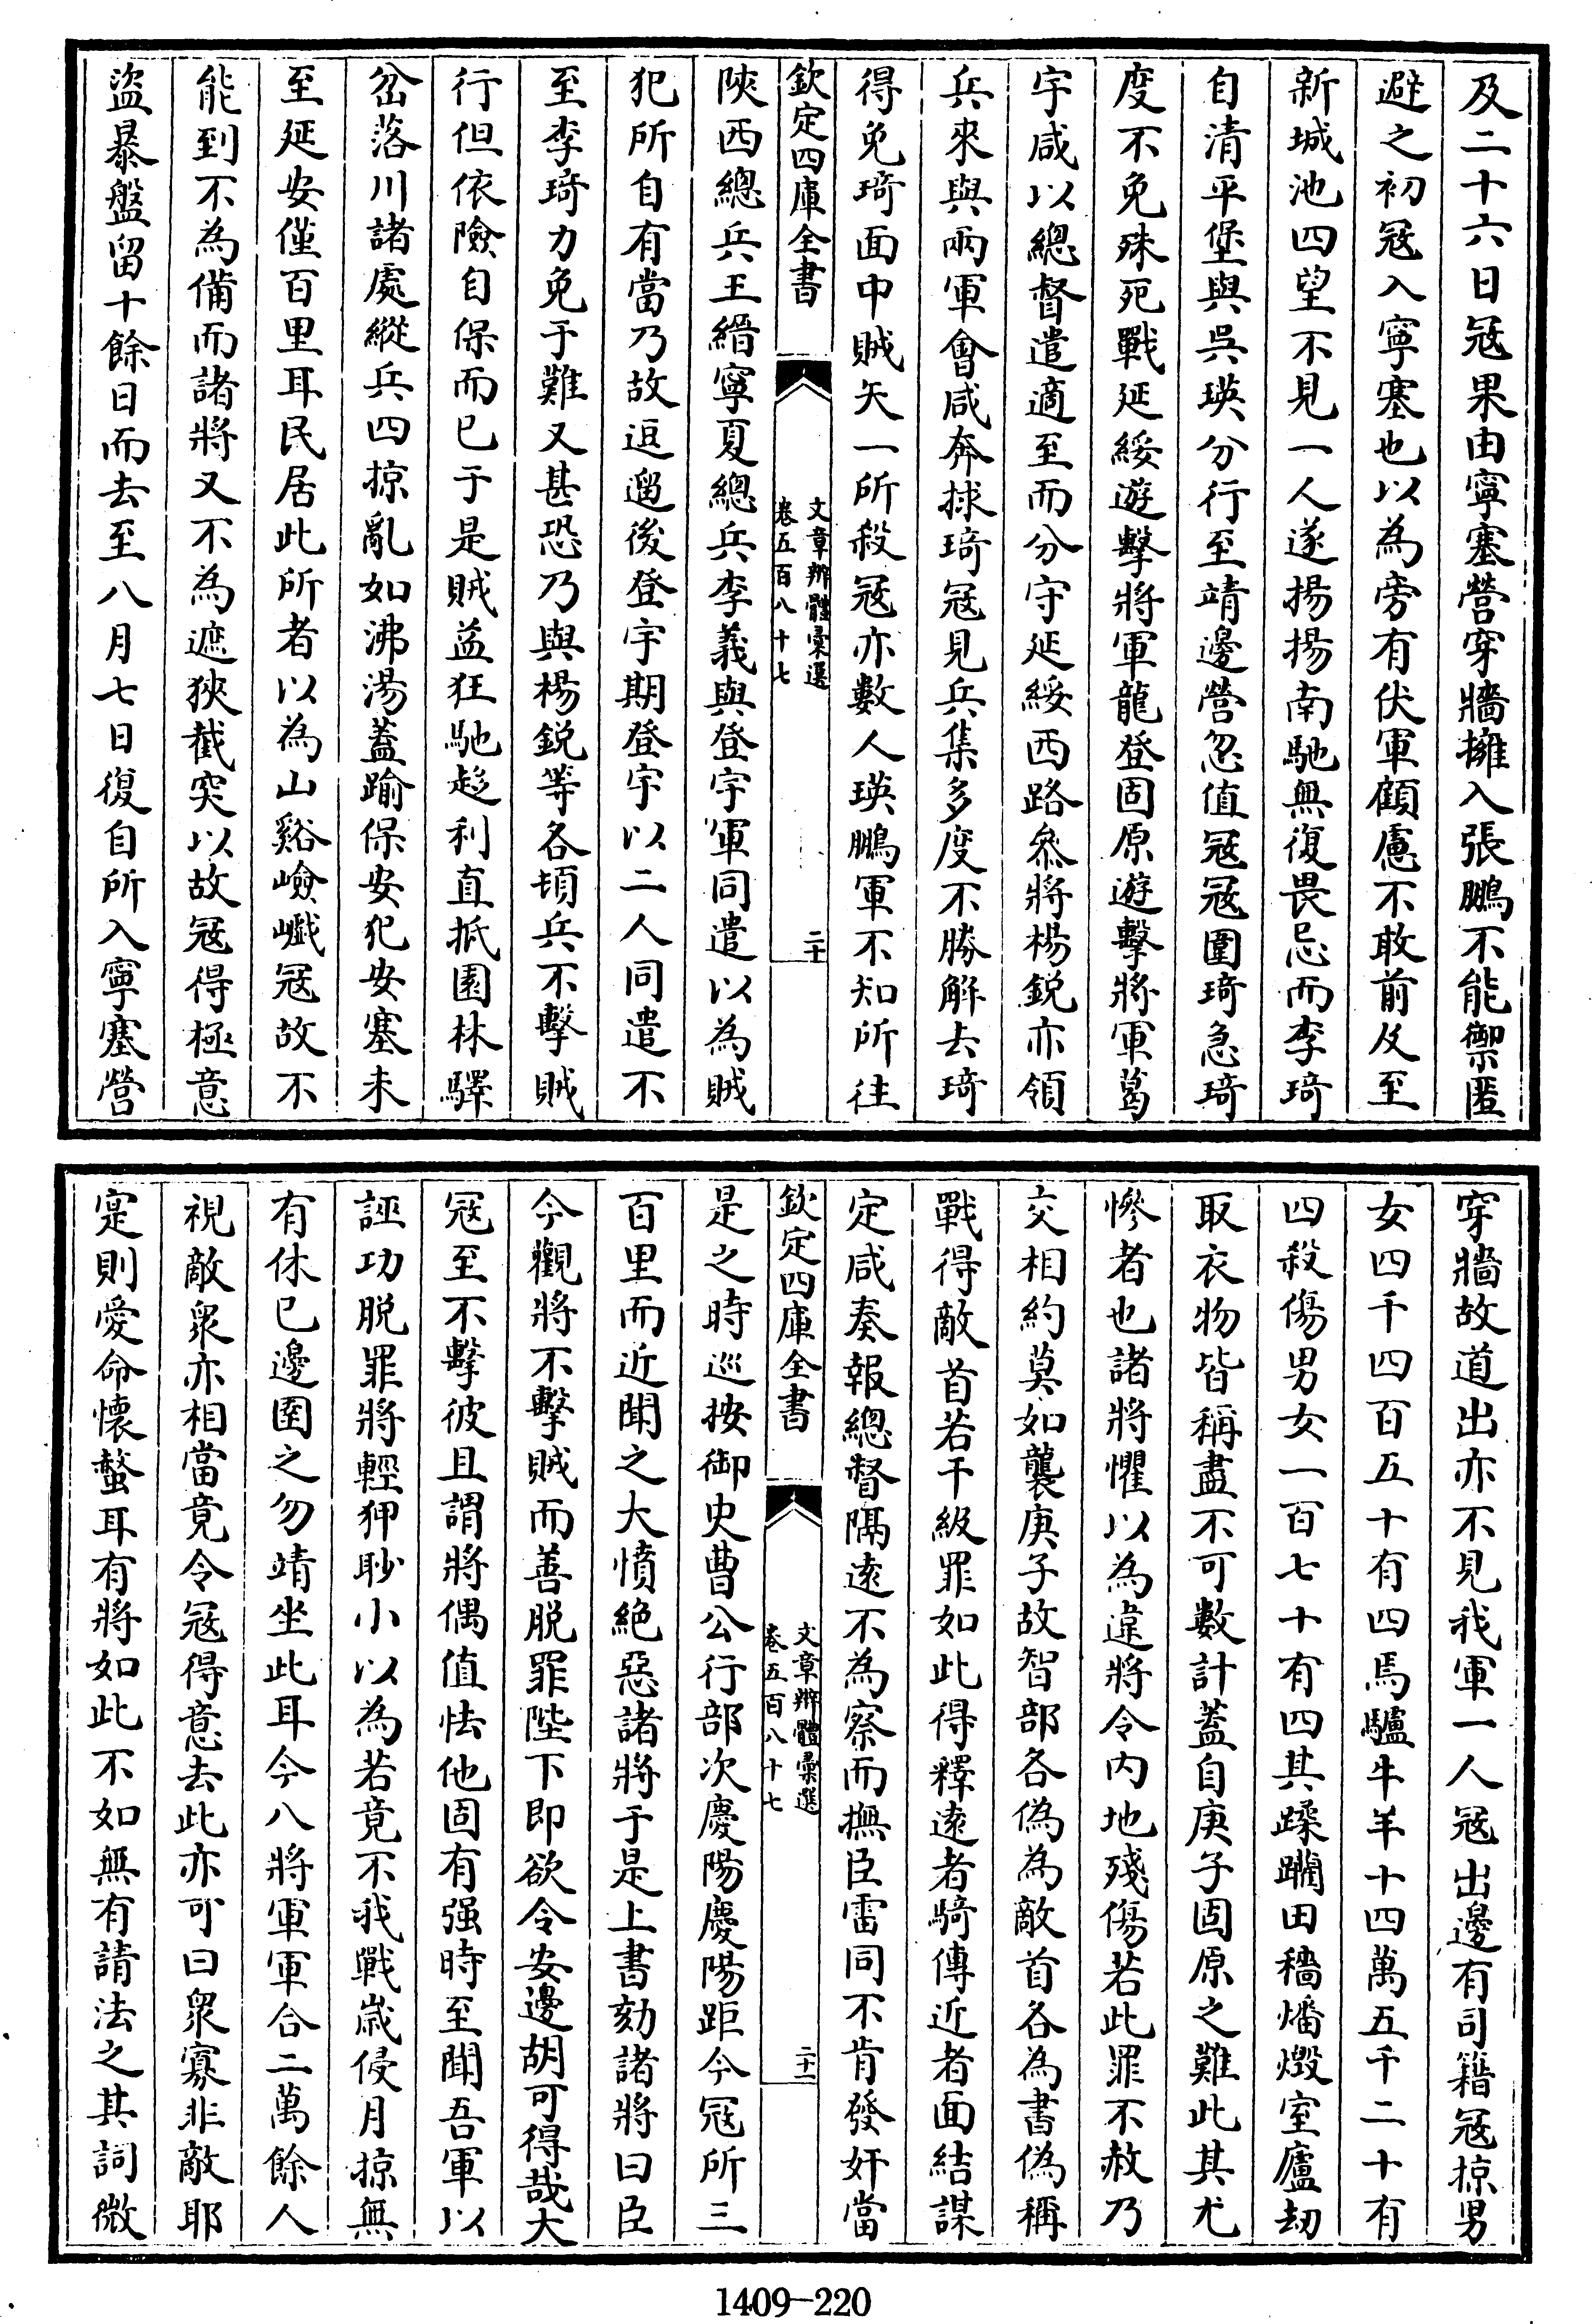 及二十六日冦果由寧塞營穿牆擁入張鵬不能禦匿
避之初冦入寧塞也以為旁有伏軍顧慮不敢前及至
新城池四望不見一人遂揚揚南馳無復畏忌而李琦
自清平堡與吳瑛分行至靖邊營忽值冦冦圍琦急琦
度不免殊死戰延綏遊擊將軍龍登固原遊擊將軍葛
宇咸以總督遣適至而分守延綏西路叅將楊鋭亦領
兵來與兩軍會咸奔捄琦冦見兵集多度不勝解去琦
得免琦面中賊矢一所殺冦亦數人瑛鵬軍不知所往
欽定四庫全書
文章辨體彚選
卷五百八十七
二十
陜西總兵王縉寧夏總兵李義與登宇軍同遣以為賊
犯所自有當乃故逗遛後登宇期登宇以二人同遣不
至李琦力免于難又甚恐乃與楊鋭等各頓兵不擊賊
行但依險自保而已于是賊益狂馳趂利直抵園林驛
岔落川諸處縱兵四掠亂如沸湯蓋踰保安犯安塞未
至延安僅百里耳民居此所者以為山谿嶮巇冦故不
能到不為備而諸將又不為遮狹截突以故冦得極意
盜暴盤留十餘日而去至八月七日復自所入寧塞營
穿牆故道出亦不見我軍一人冦出邊有司籍冦掠男
女四千四百五十有四馬驢牛羊十四萬五千二十有
四殺傷男女一百七十有四其蹂躪田穡燔燬室廬刼
取衣物皆稱盡不可數計蓋自庚子固原之難此其尤
慘者也諸將懼以為違將令内地殘傷若此罪不赦乃
交相約莫如襲庚子故智部各偽為敵首各為書偽稱
戰得敵首若干級罪如此得釋逺者騎傳近者面結謀
定咸奏報總督隔逺不為察而撫臣雷同不肯發奸當
欽定四庫全書
文章辨體彚選
卷五百八十七
二十一
是之時巡按御史曹公行部次慶陽慶陽距今冦所三
百里而近聞之大憤絶惡諸將于是上書劾諸將曰臣
今觀將不擊賊而善脱罪陛下即欲令安邊胡可得哉大
冦至不擊彼且謂將偶值怯他固有强時至聞吾軍以
誣功脱罪將輕狎眇小以為若竟不我戰嵗侵月掠無
有休已邊圉之勿靖坐此耳今八將軍軍合二萬餘人
視敵衆亦相當竟令冦得意去此亦可曰衆寡非敵耶
寔則愛命懷螫耳有將如此不如無有請法之其詞微
1409-220